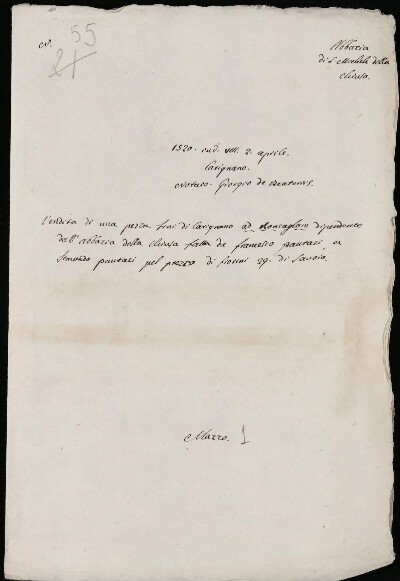 N. 55
21
Abbazia
di S. Michele della
Chiusa.
1520. ind. VIII. 2. aprile.
Carignano.
Notaro Giorgio de
Vendita di una pezza fini di Carignano ad Roncaglam dipendente
dall'abbazia della Chiusa fatta da francesco pautasi, a
pautasi pel prezzo di fiorini 29. di Savoia.
Mazzo. 1